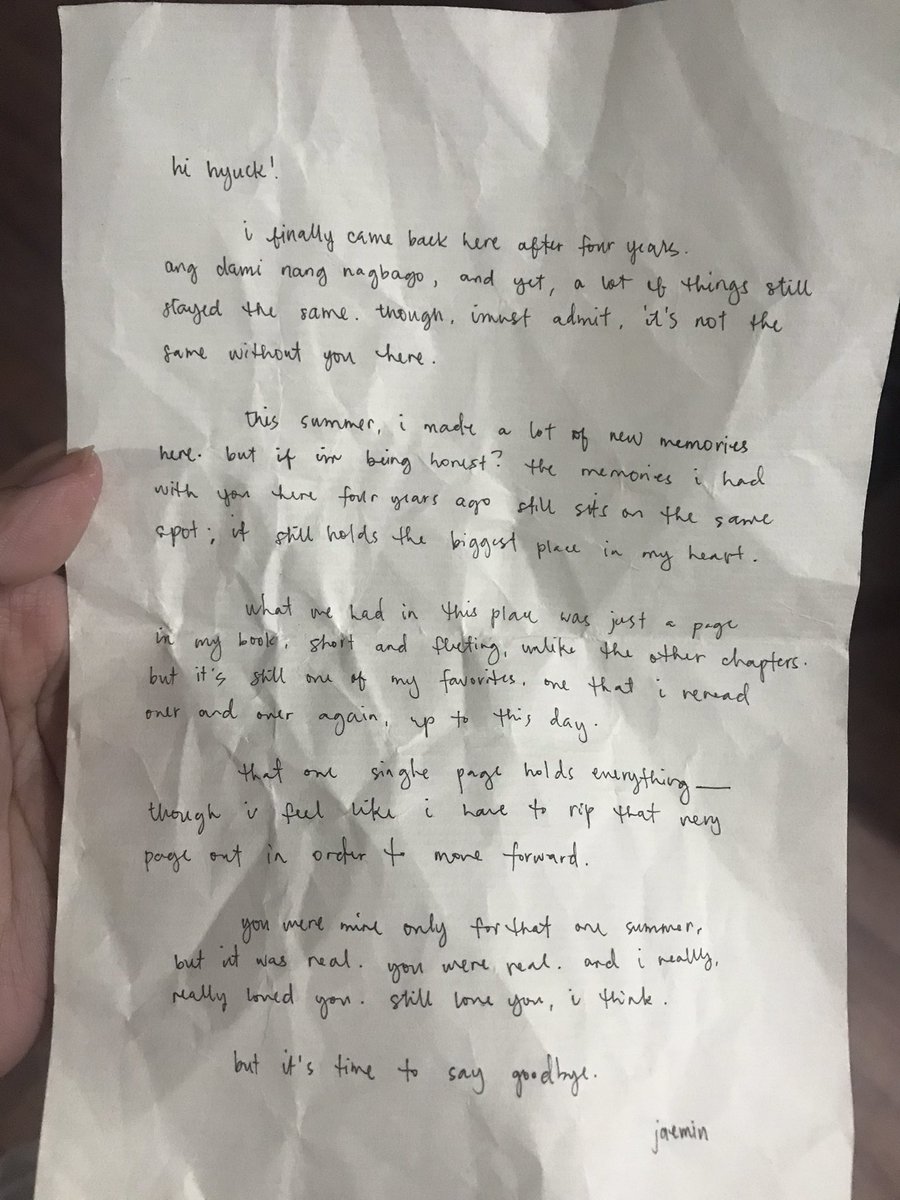 hi hyuck!
i finally came back here after four years.
ang dami nang nagbago, and yet, a lot of things still
stayed the same. though, i must admit, it's not the
same without you here.
this summer, i made a lot of new memories
here. but if im being honest? the memories i had
with you here four years ago still sits on the same
spot; it still holds the biggest place in my heart.
what we had in this place was just a page
in my book, short and fleeting, unlike the other chapters.
but it's still one of my favorites, one that i reread
over and over again, up to this day.
that one single page holds everything—
though i feel like i have to rip that very
page out in order to move forward.
you were mine only for that one summer,
but it was real. you were real. and i really,
really loved you. still love you, i think.
but it's time to say goodbye.
jaemin